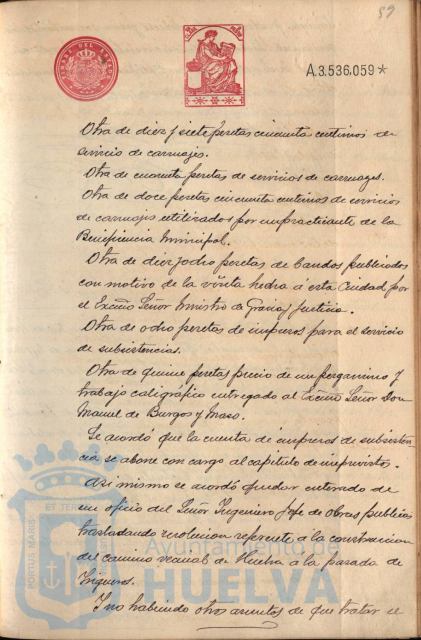 59
TIMBRE DEL ESTADO
A.3.536.059*
Otra de diez y siete pesetas cincuenta centimos de
servicio de carruajes.
Otra de cuarenta pesetas de servicios de carruages.
Otra de doce pesetas cincuenta centimos de servicios
de carruajes utilizados por un practicante de la
Beneficencia Municipal.
Otra de diez y ocho pesetas de bandos publicados
con motivo de la visita hecha a esta Ciudad por
el Excmo Señor Ministro de Gracia y Justicia.
Otra de ocho pesetas de impresos para el servicio
de subsistencias.
Otra de quince pesetas precio de un pergamino y
trabajo caligráfico entregado al Excmo Señor Don
Manuel de Burgos y Mazo.
Se acordó que la cuenta de impresos de subsisten-
cia se abone con cargo al capitulo de imprevistos.
Asi mismo se acordó quedar enterado de
un oficio del Señor Ingeniero Jefe de Obras publicas
trasladando resolucion referente a la construccion
del camino vecinal de Huelva a la parada de
Trigueros.
Y no habiendo otros asuntos de que tratar se
PORTUS MARIS
ET TERRAE
Ayuntamiento de
HUELVA